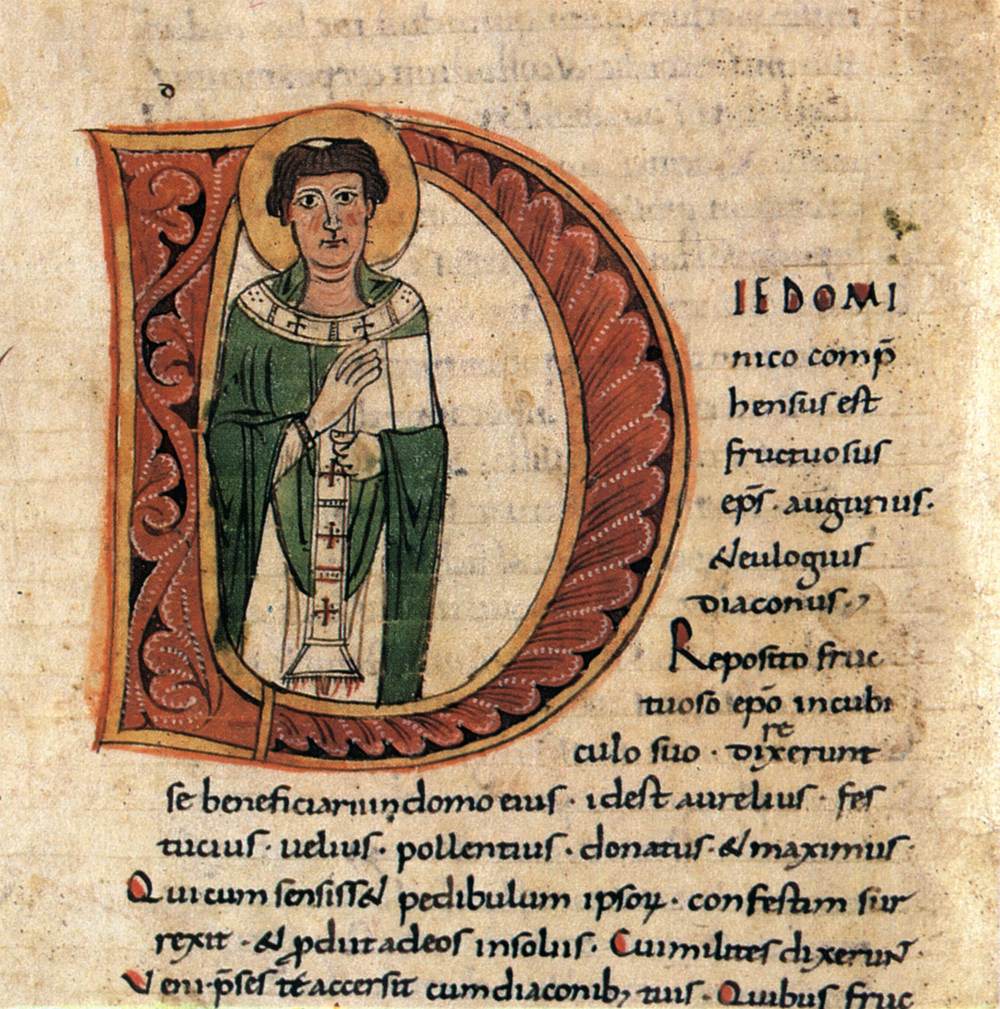 d
IE DOMI
nico comp̄
hensus est
fructuosus
ep̄s · augurius ·
& eulogius
diaconus ·,
Reposito fruc
tuoso ep̄o in cubi
culo suo · dixerunt
re
se beneficiariiin domo eius · id est aurelius · fes
tucius · uelius · pollentius · donatus · & maximus ·
Qui cum sensiss& pedibulum ipsoꝝ · confestim sur
rexit · & ꝓdiit ad eos in soluis · Cui milites dixerunt ·
Veni · p̄ses te accersit cum diaconib; tuis · Quibus fruc